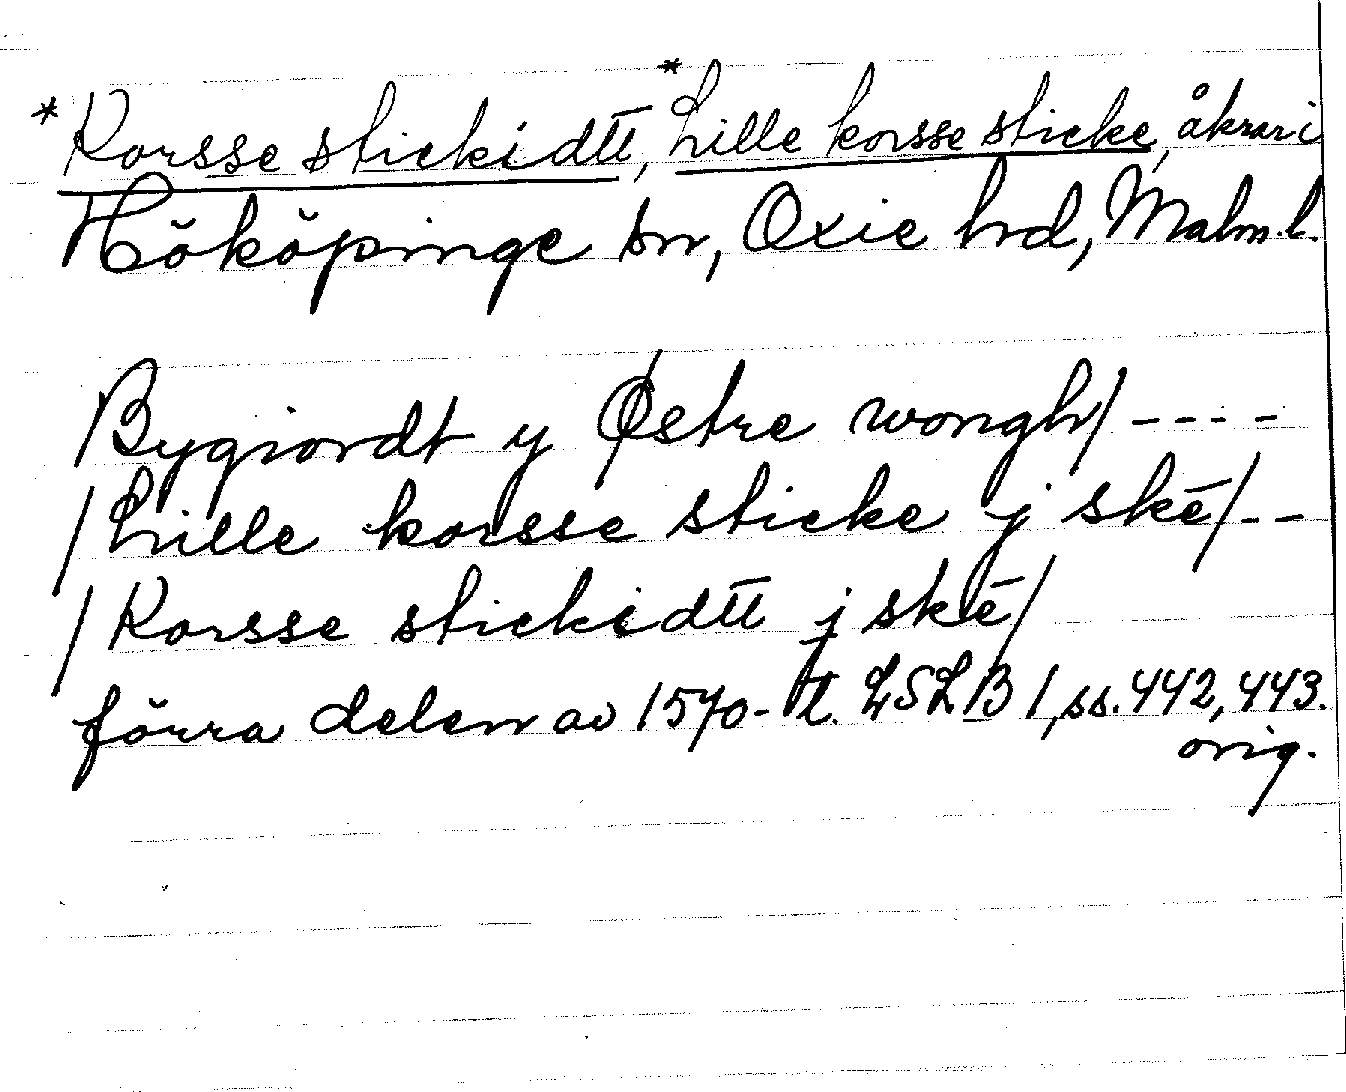 *Korsse stickidtt, *Lille korsse sticke, åkrar i
Hököpinge sn, Oxie hrd, Malm.l.
Bygiordt y Østre wongh/----
/Lille korsse sticke j skē/--
/Korsse stickidtt j skē/
förra delen av 1570-t. LSLB 1, ss. 442, 443.
orig.